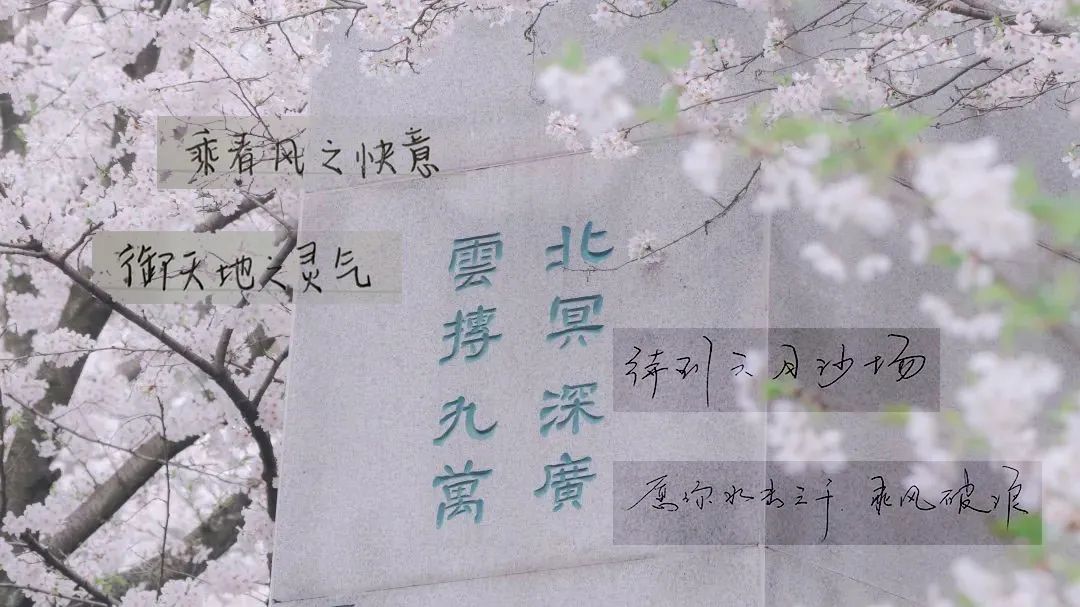 乘春风之快意
御天地之灵气
北冥深廣
雲摶九萬
待到六月沙场
愿你水击三千 乘风破浪